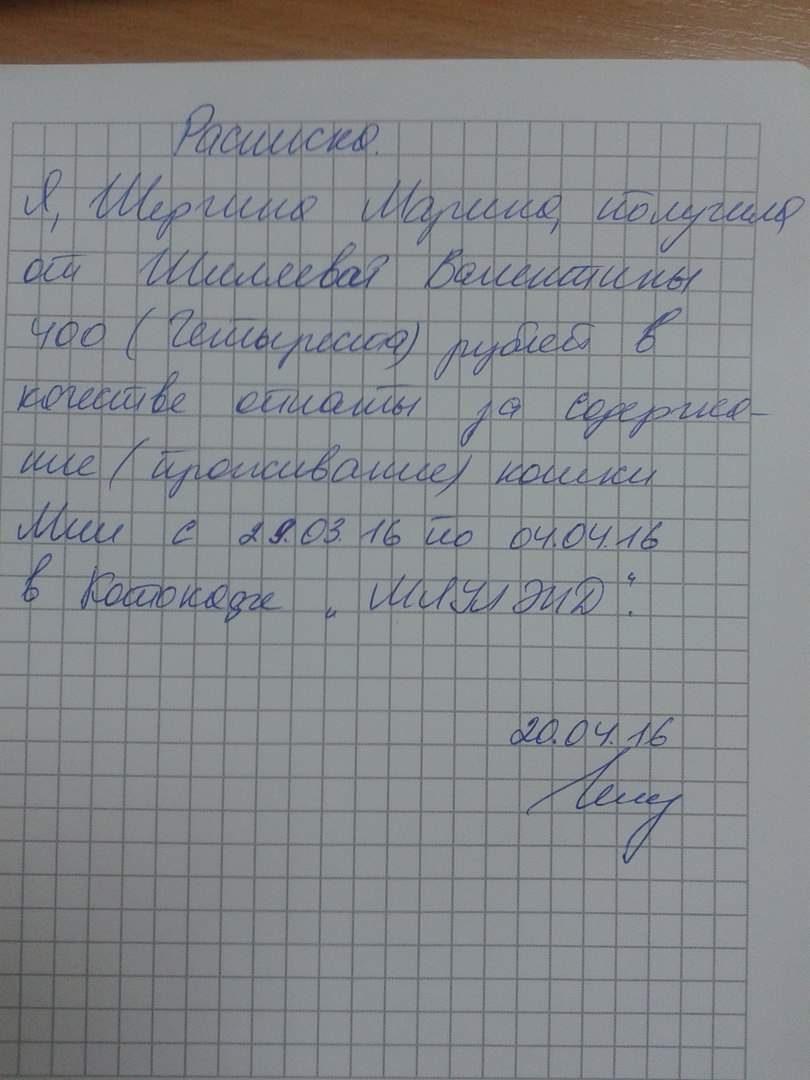 Расписка.
Я, Шергина Марина, получила
от Шиляевой Валентины
400 (Четыреста) рублей в
качестве оплаты за содержа-
ние (проживание) кошки
Мии с 29.03.16 по 04.04.16
в Котокафе „МЯУЛЭНД“.
20.04.16